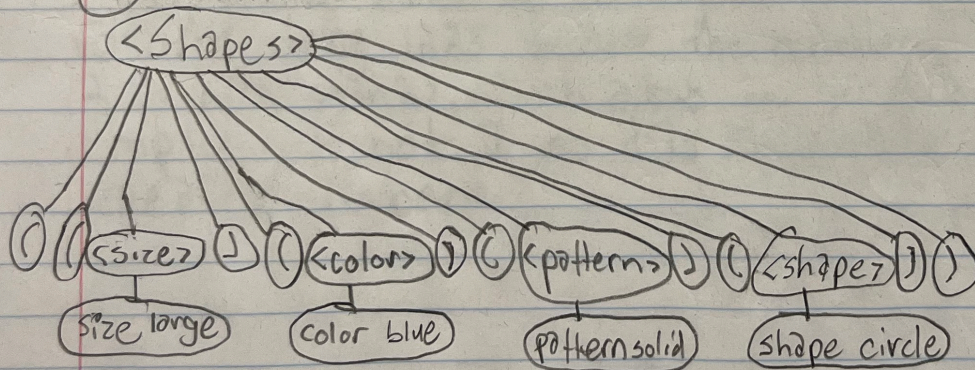 <Shapes>
( ( <size> ) ( <color> ) ( <pattern> ) ( <shape> ) )
size large color blue pattern solid shape circle